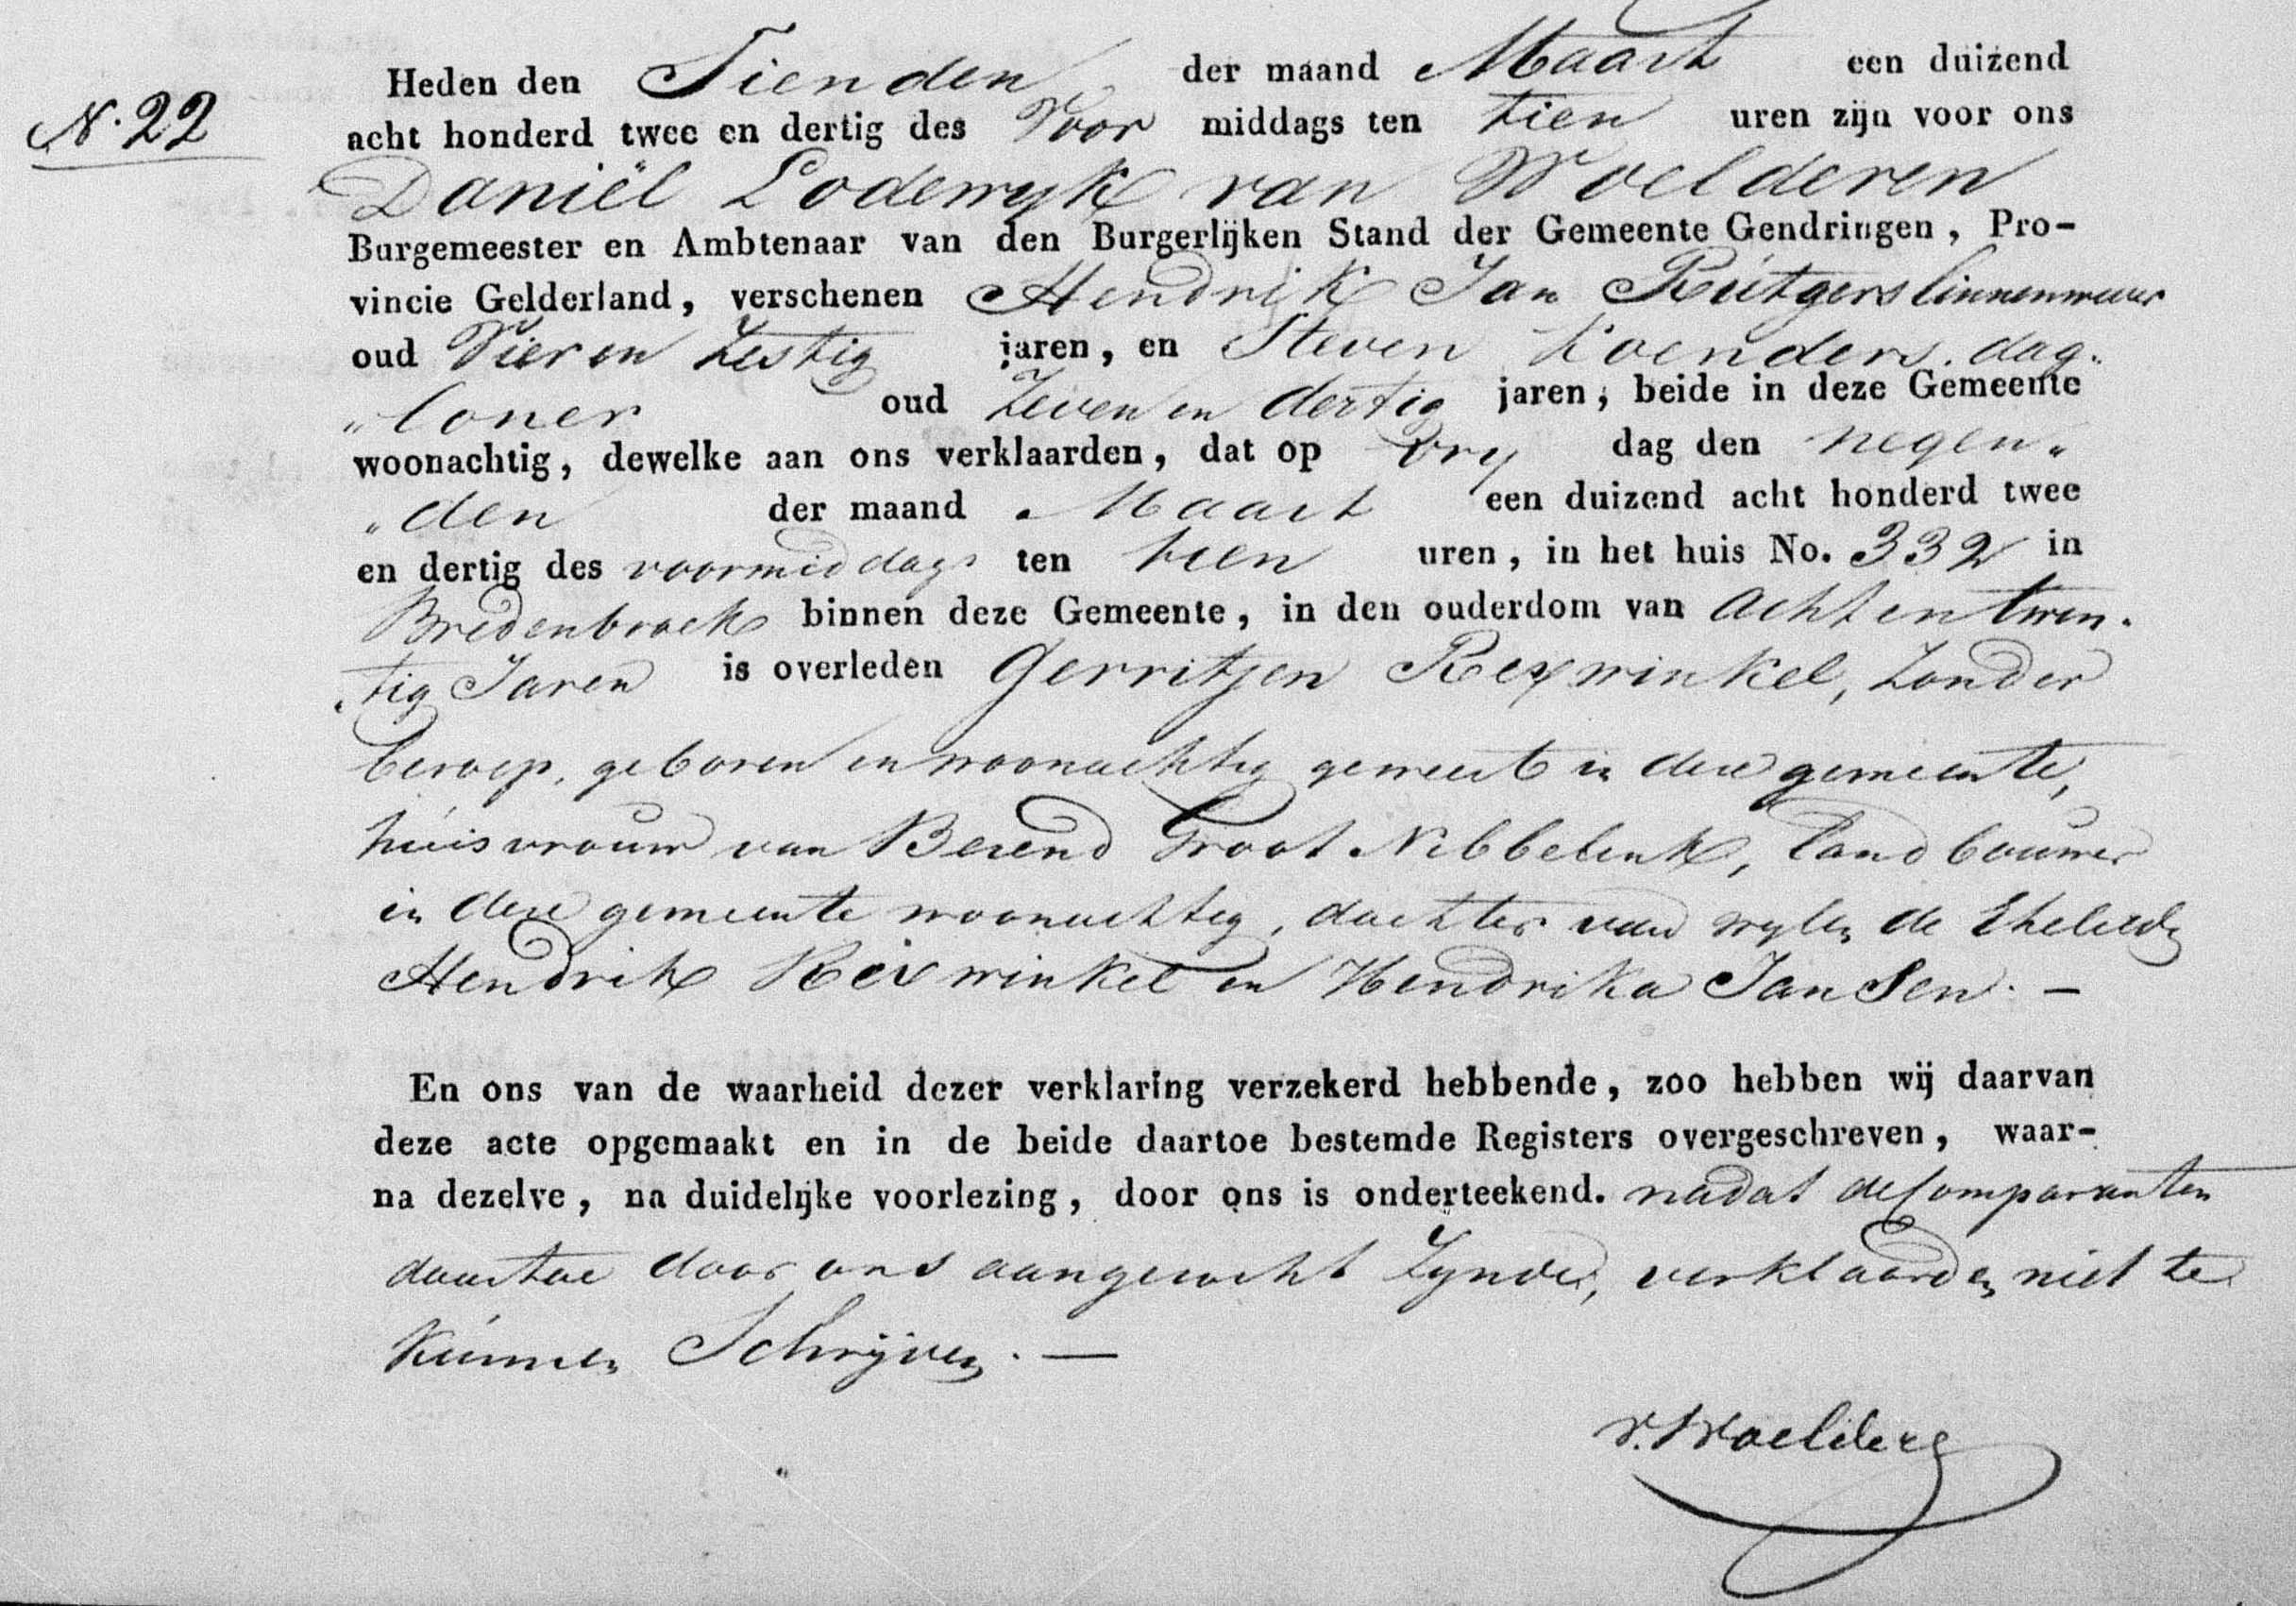 N. 22
Heden den Tienden der maand Maart een duizend
acht honderd twee en dertig des Voor middags ten tien uren zijn voor ons
Daniël Lodewyk van Woelderen
Burgemeester en Ambtenaar van den Burgerlijken Stand der Gemeente Gendringen, Pro-
vincie Gelderland, verschenen Hendrik Jan Rútgers linnenwever
oud Vier en Zestig jaren, en Steven Koenders. dag„
„loner oud Zeven en dertig jaren, beide in deze Gemeente
woonachtig, dewelke aan ons verklaarden, dat op Vry dag den negen„
„den der maand Maart een duizend acht honderd twee
en dertig des voormiddags ten tien uren, in het huis No. 332 in
Bredenbroek binnen deze Gemeente, in den ouderdom van Acht en twen„
„tig Jaren is overleden Gerritjen Rexwinkel, Zonder
beroep, geboren en woonachtig geweest in deze gemeente,
húisvrouw van Berend Groot Nibbelink, Landbouwer
in deze gemeente woonachtig, dochter van wylen de Ehelieden
Hendrik Rexwinkel en Hendrika Jansen. —
En ons van de waarheid dezer verklaring verzekerd hebbende, zoo hebben wij daarvan
deze acte opgemaakt en in de beide daartoe bestemde Registers overgeschreven, waar-
na dezelve, na duidelijke voorlezing, door ons is onderteekend. nadat de Comparanten
daartoe door ons aangezocht Zynde, verklaarden niet te
kúnnen Schrijven. —
v. Woelderen